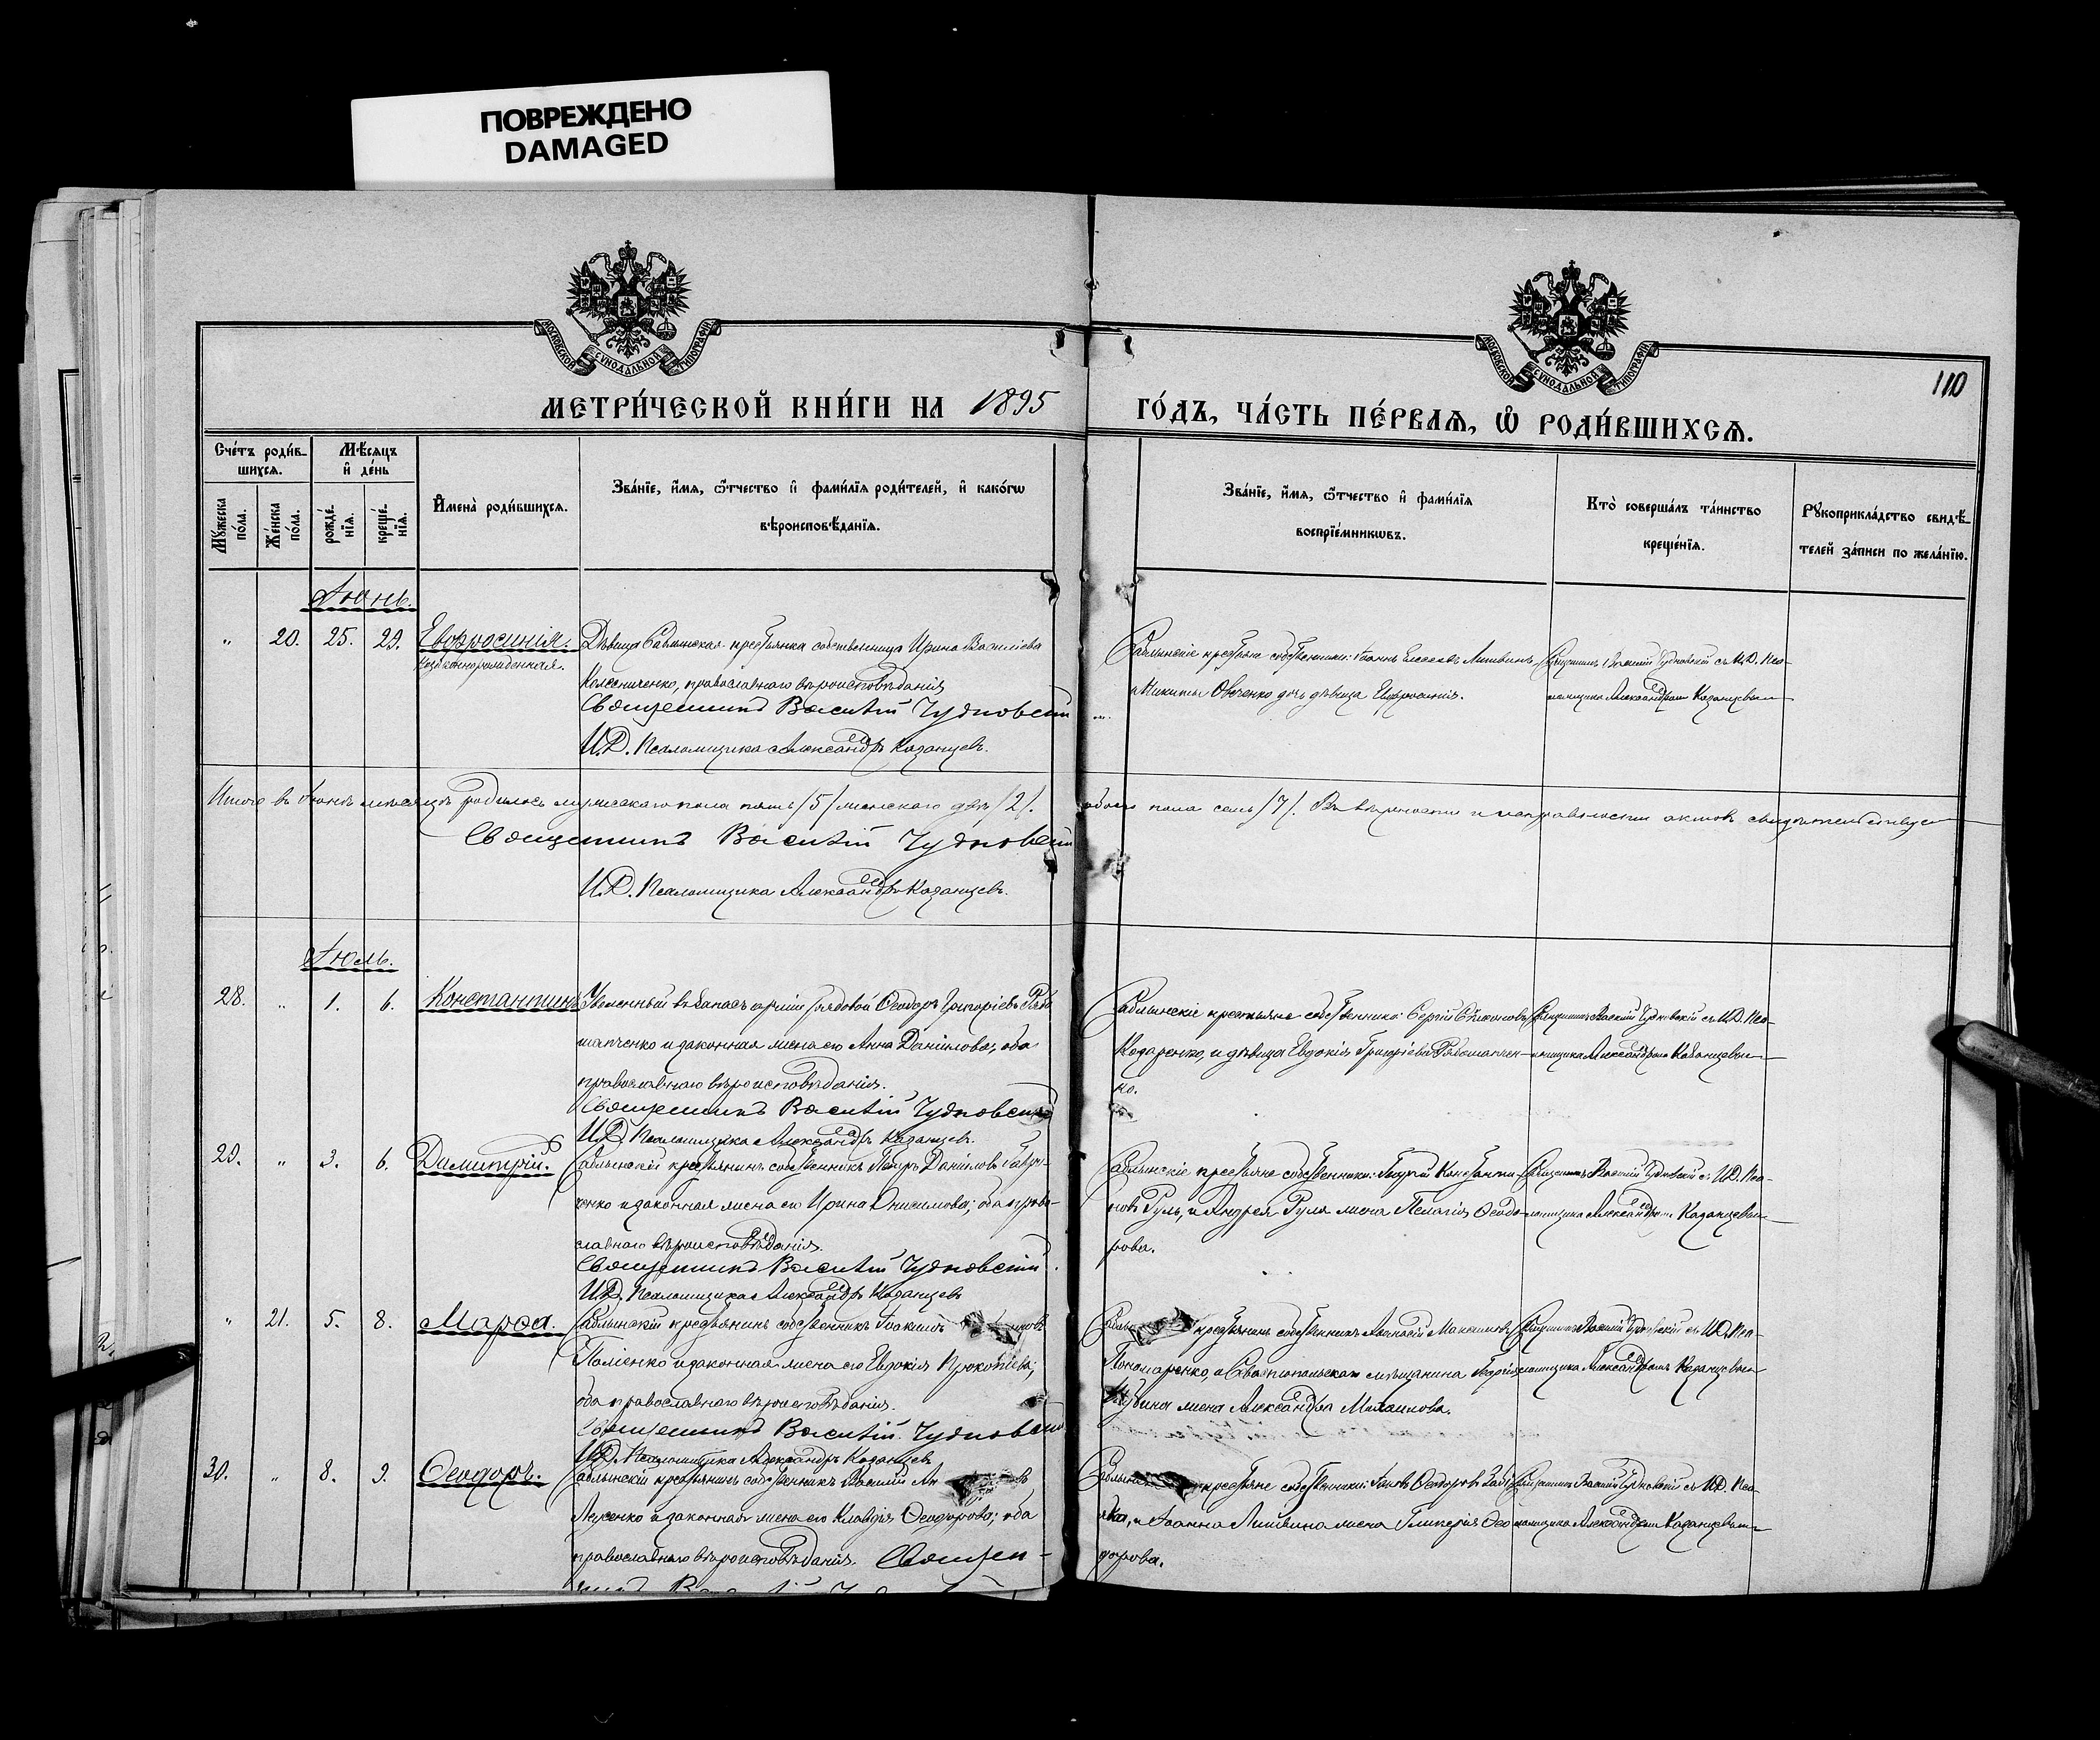 ПОВРЕЖДЕНО
DAMAGED
МОСКОВСКОЙ СѴНОДАЛЬНОЙ ТИПОГРАФІИ
МОСКОВСКОЙ СѴНОДАЛЬНОЙ ТИПОГРАФІИ
110
МЕТРИ́ЧЕСКОЙ КНИ́ГИ НА 1895
ГО́ДЪ, ЧА́СТЬ ПЕ́РВАѦ, Ѡ҆ РОДИ́ВШИХСѦ.
Сче́тъ роди́в-
шихсѧ.
Мѣ́сѧцъ
и҆ де́нь
Мꙋ́жеска
по́ла.
Же́нска
по́ла.
рожде́-
нїѧ.
креще́-
нїѧ.
И҆мена̀ роди́вшихсѧ.
Зва́нїе, и҆́мѧ, ѻ҆́тчество и҆ фами́лїѧ роди́телей, и҆ како́гѡ
вѣроисповѣ́данїѧ.
Зва́нїе, и҆́мѧ, ѻ҆́тчество и҆ фами́лїѧ
воспрїе́мникѡвъ.
Кто̀ соверша́лъ та́инство
креще́нїѧ.
Рꙋкоприкла́дство свидѣ́-
телей за́писи по жела́нїю.
Іюнь.
" 20. 25. 29. Евфросинія.
незаконнорожденная.
Дѣвица Саблинская крестьянка собственница Ирина Василіева
Колесниченко, православнаго вѣроисповѣданія
Священникъ Василій Чудновскій
И.Д. Псаломщика Александръ Казанцевъ.
Саблинскіе крестьяне собственники: Іоаннъ Елисеевъ Литвинъ,
и Никиты Овченко дочь дѣвица Евфросинія.
Священникъ Василій Чудновскій съ И.Д. Пса-
ломщика Александромъ Казанцевымъ
Итого въ Іюнѣ мѣсяцѣ родилось мужескаго пола пять /5/ женскаго двѣ /2/. обоего пола семь /7/. Въ вѣрности и исправности актовъ свидѣтельствуемъ
Священникъ Василій Чудновскій
И.Д. Псаломщика Александръ Казанцевъ.
Іюль.
28. " 1. 6. Константинъ
Уволенный въ запасъ арміи рядовой Ѳеодоръ Григоріевъ Рябо-
шапченко и законная жена его Анна Даніилова, оба
православнаго вѣроисповѣданія.
Священникъ Василій Чудновскій
И.Д. Псаломщика Александръ Казанцевъ.
Саблинскіе крестьяне собственники: Сергій
Козаренко, и дѣвица Евдокія Григоріева Рябошапчен-
ко.
Священникъ Василій Чудновскій съ И.Д. Пса-
ломщика Александромъ Казанцевымъ
29. " 3. 6. Димитрій.
Саблинскій крестьянинъ собственникъ Петръ Даніиловъ
ченко и законная жена его Ирина Онисимова; оба право-
славнаго вѣроисповѣданія.
Священникъ Василій Чудновскій.
И.Д. Псаломщика Александръ Казанцевъ
Саблинскіе крестьяне собственники: Георгій Константи-
новъ Руль, и Андрея Руля жена Пелагія Ѳеодо-
рова.
Священникъ Василій Чудновскій съ И.Д. Пса-
ломщика Александромъ Казанцевымъ
" 21. 5. 8. Марѳа.
Саблинскій крестьянинъ собственникъ Іоакимъ
и законная жена его Евдокія Прокопіева;
оба православнаго вѣроисповѣданія.
Священникъ Василій Чудновскій
И.Д. Псаломщика Александръ Казанцевъ
крестьянинъ собственникъ Аѳанасій Максимовъ
Пономаренко, и Севастопольскаго мѣщанина Георгія
жена Александра Михаилова.
Священникъ Василій Чудновскій съ И.Д. Пса-
ломщика Александромъ Казанцевымъ
30. " 8. 9. Ѳеодоръ.
Саблинскій крестьянинъ собственникъ Василій
и законная жена его Клавдія Ѳеодорова; оба
православнаго вѣроисповѣданія. Священ-
крестьяне собственники: Ѳеодоровъ
и Іоанна Литвина жена Гликерія Ѳео-
дорова.
Священникъ Василій Чудновскій съ И.Д. Пса-
ломщика Александромъ Казанцевымъ